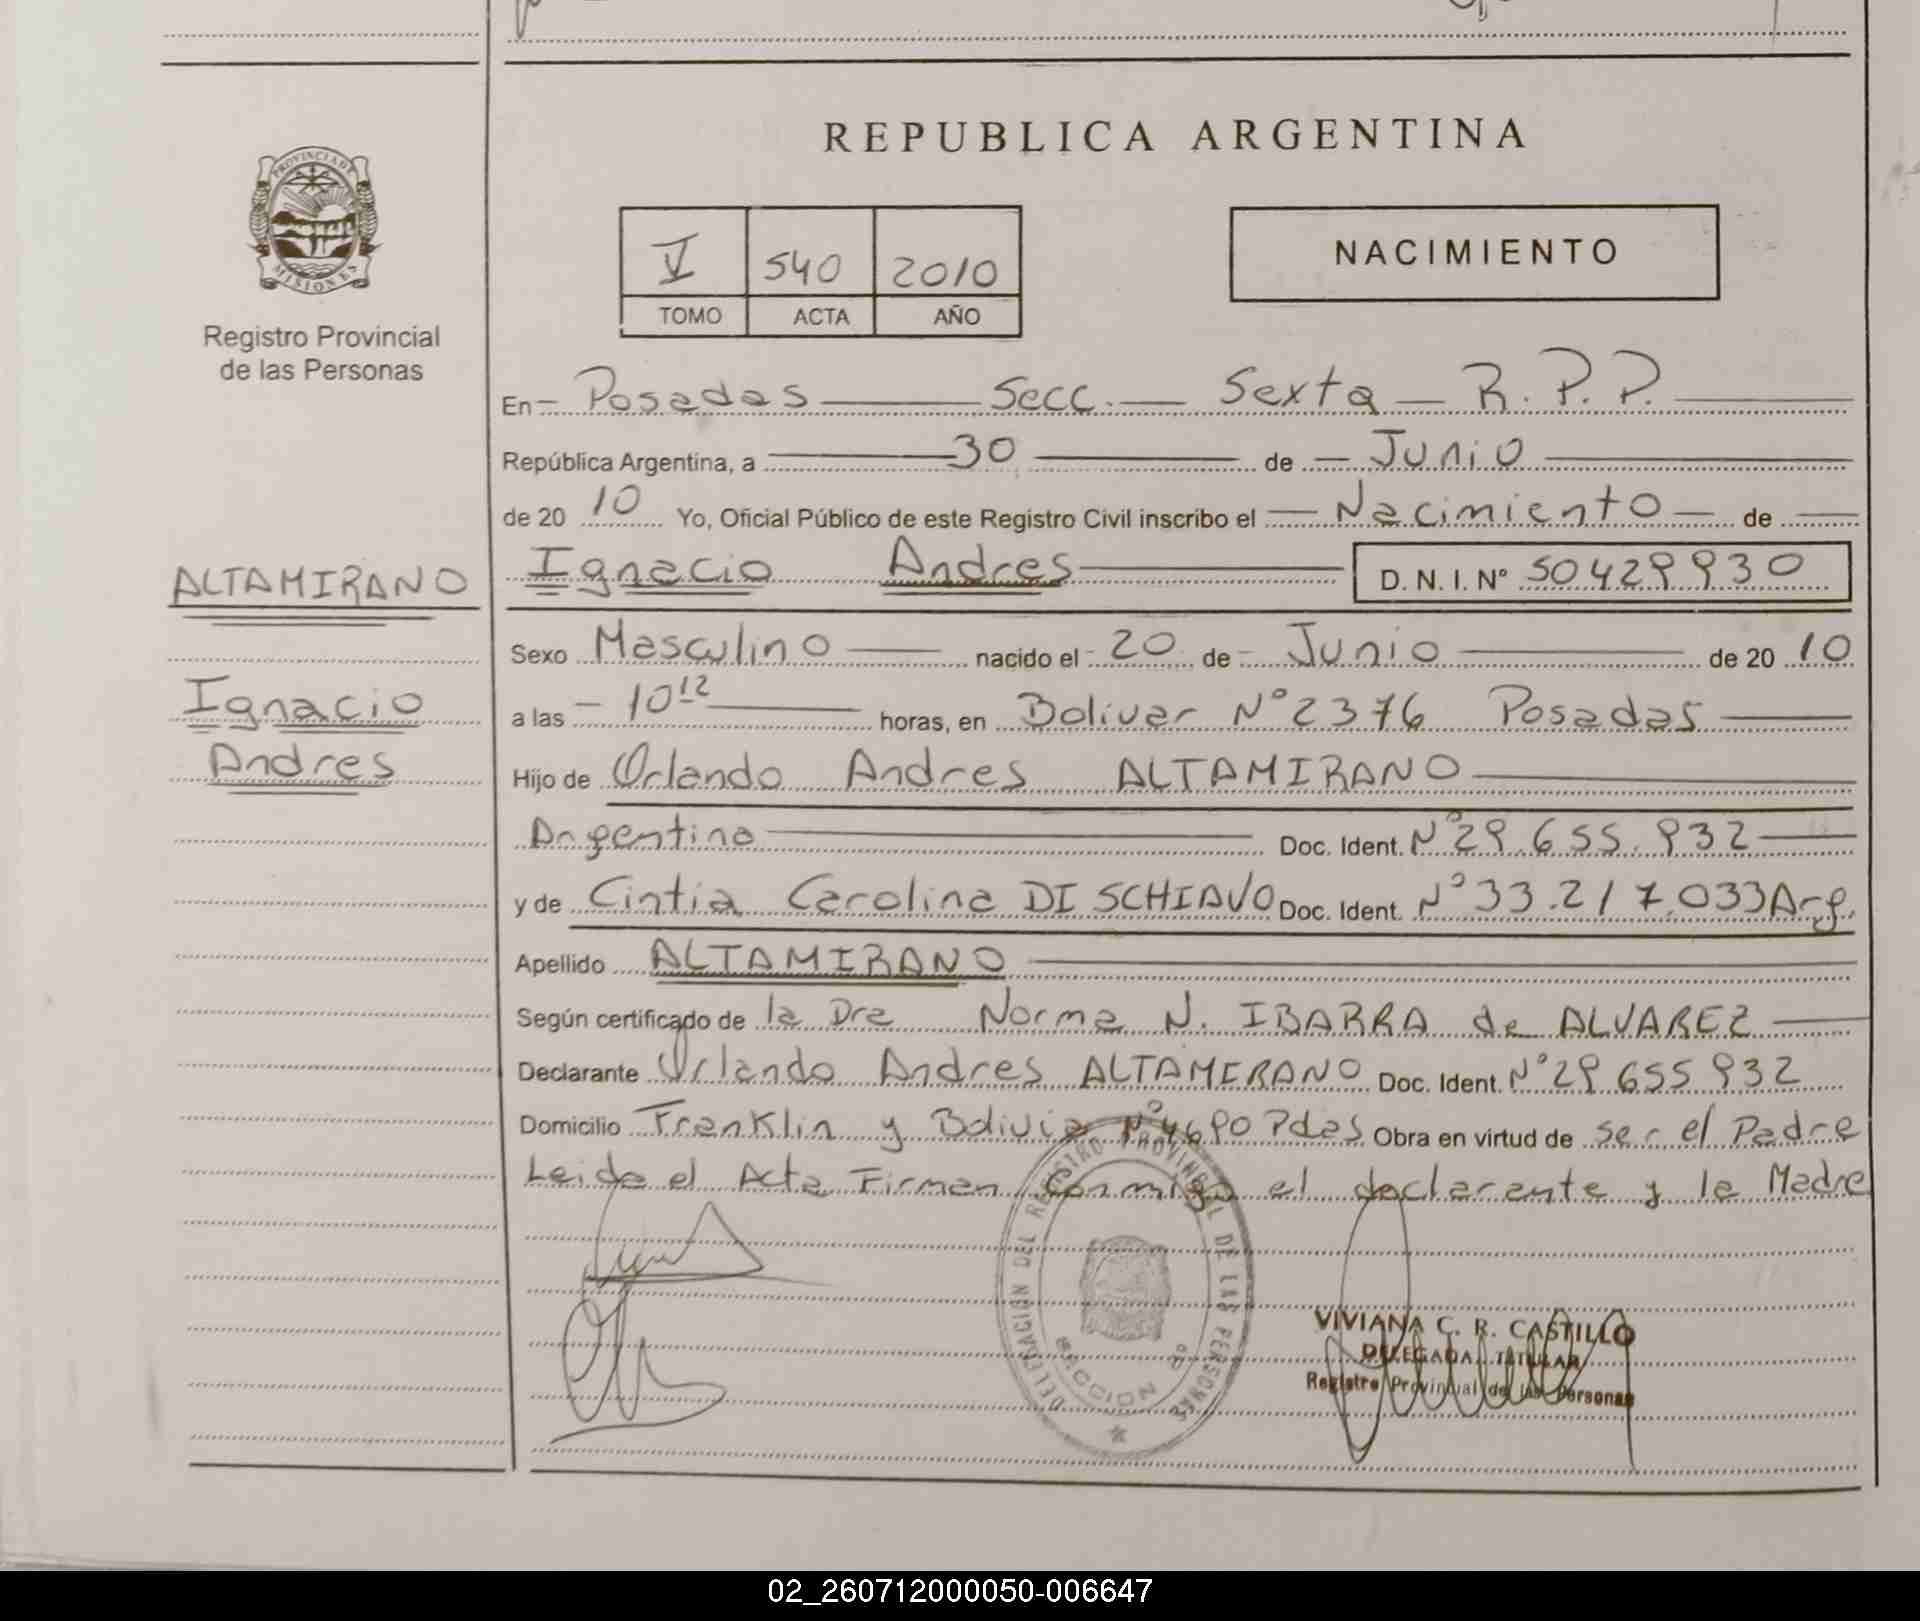 REPUBLICA ARGENTINA
PROVINCIA DE MISIONES
Registro Provincial
de las Personas
V 540 2010
TOMO ACTA AÑO
NACIMIENTO
En Posadas Secc. Sexta R.P.P.
República Argentina, a 30 de Junio
de 2010 Yo, Oficial Público de este Registro Civil inscribo el Nacimiento de
Ignacio Andres D. N. I. Nº 50429930
ALTAMIRANO
Ignacio
Andres
Sexo Masculino nacido el 20 de Junio de 2010
a las 10 12 horas, en Bolivar Nº 2376 Posadas
Hijo de Orlando Andres ALTAMIRANO
Argentino Doc. Ident. Nº 29.655.932
y de Cintia Carolina DI SCHIAVO Doc. Ident. Nº 33.217.033 Arg.
Apellido ALTAMIRANO
Según certificado de la Dra Norma N. IBARRA de ALVAREZ
Declarante Orlando Andres ALTAMIRANO Doc. Ident. Nº 29 655 932
Domicilio Franklin y Bolivia Nº 4690 Pdas Obra en virtud de ser el Padre
Leida el Acta Firman conmigo el declarante y la Madre
DELEGACION DEL REGISTRO PROVINCIAL DE LAS PERSONAS
SECCION 6ª
VIVIANA C. R. CASTILLO
DELEGADA TITULAR
Registro Provincial de las Personas
02_260712000050-006647